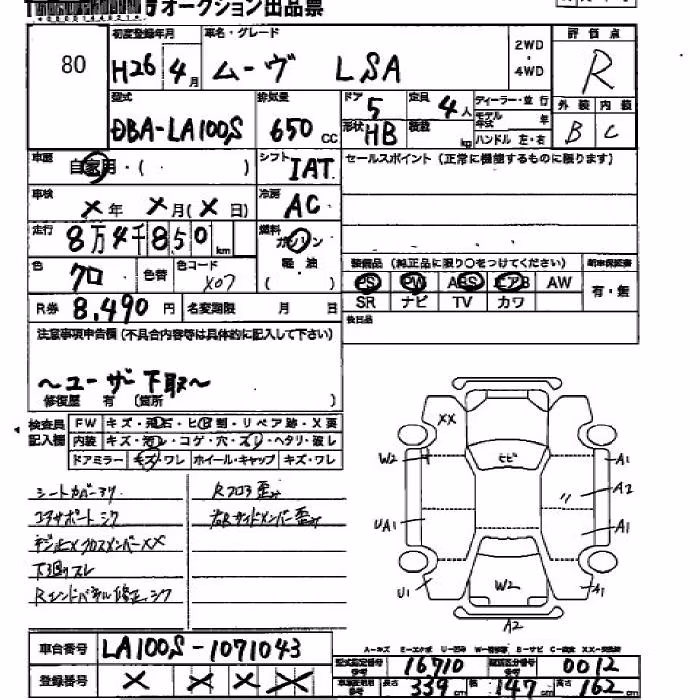 オークション出品票
80
初度登録年月 車名・グレード
H26 4月 ムーヴ LSA
2WD・4WD
評価点
R
外装 内装
B C
型式 排気量 ドア 定員 ディーラー・並行
DBA-LA100S 650cc 5 4人
形状 HB 積載 kg
モデル年式 年
ハンドル 左・右
車歴 自家用・( ) シフト IAT
セールスポイント(正常に機能するものに限ります)
車検 X年 X月(X日) 冷房 AC
走行 8万4千850km 燃料 ガソリン 軽・油 ( )
色 クロ 色替 色コード X07
装備品(純正品に限り○をつけてください) 新車保証書
PS PW ABS エアB AW 有・無
SR ナビ TV カワ
R券 8,490円 名変期限 月 日
後日品
注意事項申告欄(不具合内容等は具体的に記入して下さい)
~ユーザー下取~
修復歴 有(箇所 )
検査員記入欄
FW キズ・飛石・ヒビ割・リペア跡・X要
内装 キズ・汚レ・コゲ・穴・スレ・ヘタリ・破レ
ドアミラー キズ・ワレ ホイール・キャップ キズ・ワレ
シートカバー
コアサポートシワ
クロスメンバーXX
下回リスレ
Rエンドパネル修正シワ
Rフロア歪ミ
右Rサイドメンバー歪ミ
XX
W2 ヒビ A1
A2
UA1 A1
U1 W2 A1
A2
車台番号 LA100S-1071043
登録番号 X X X X
A-キズ E-エクボ U-凹 W-補修跡 S-サビ C-腐食 XX-交換済
型式指定番号 16710 類別区分番号 0012
長さ 339cm 幅 147cm 高さ 162cm